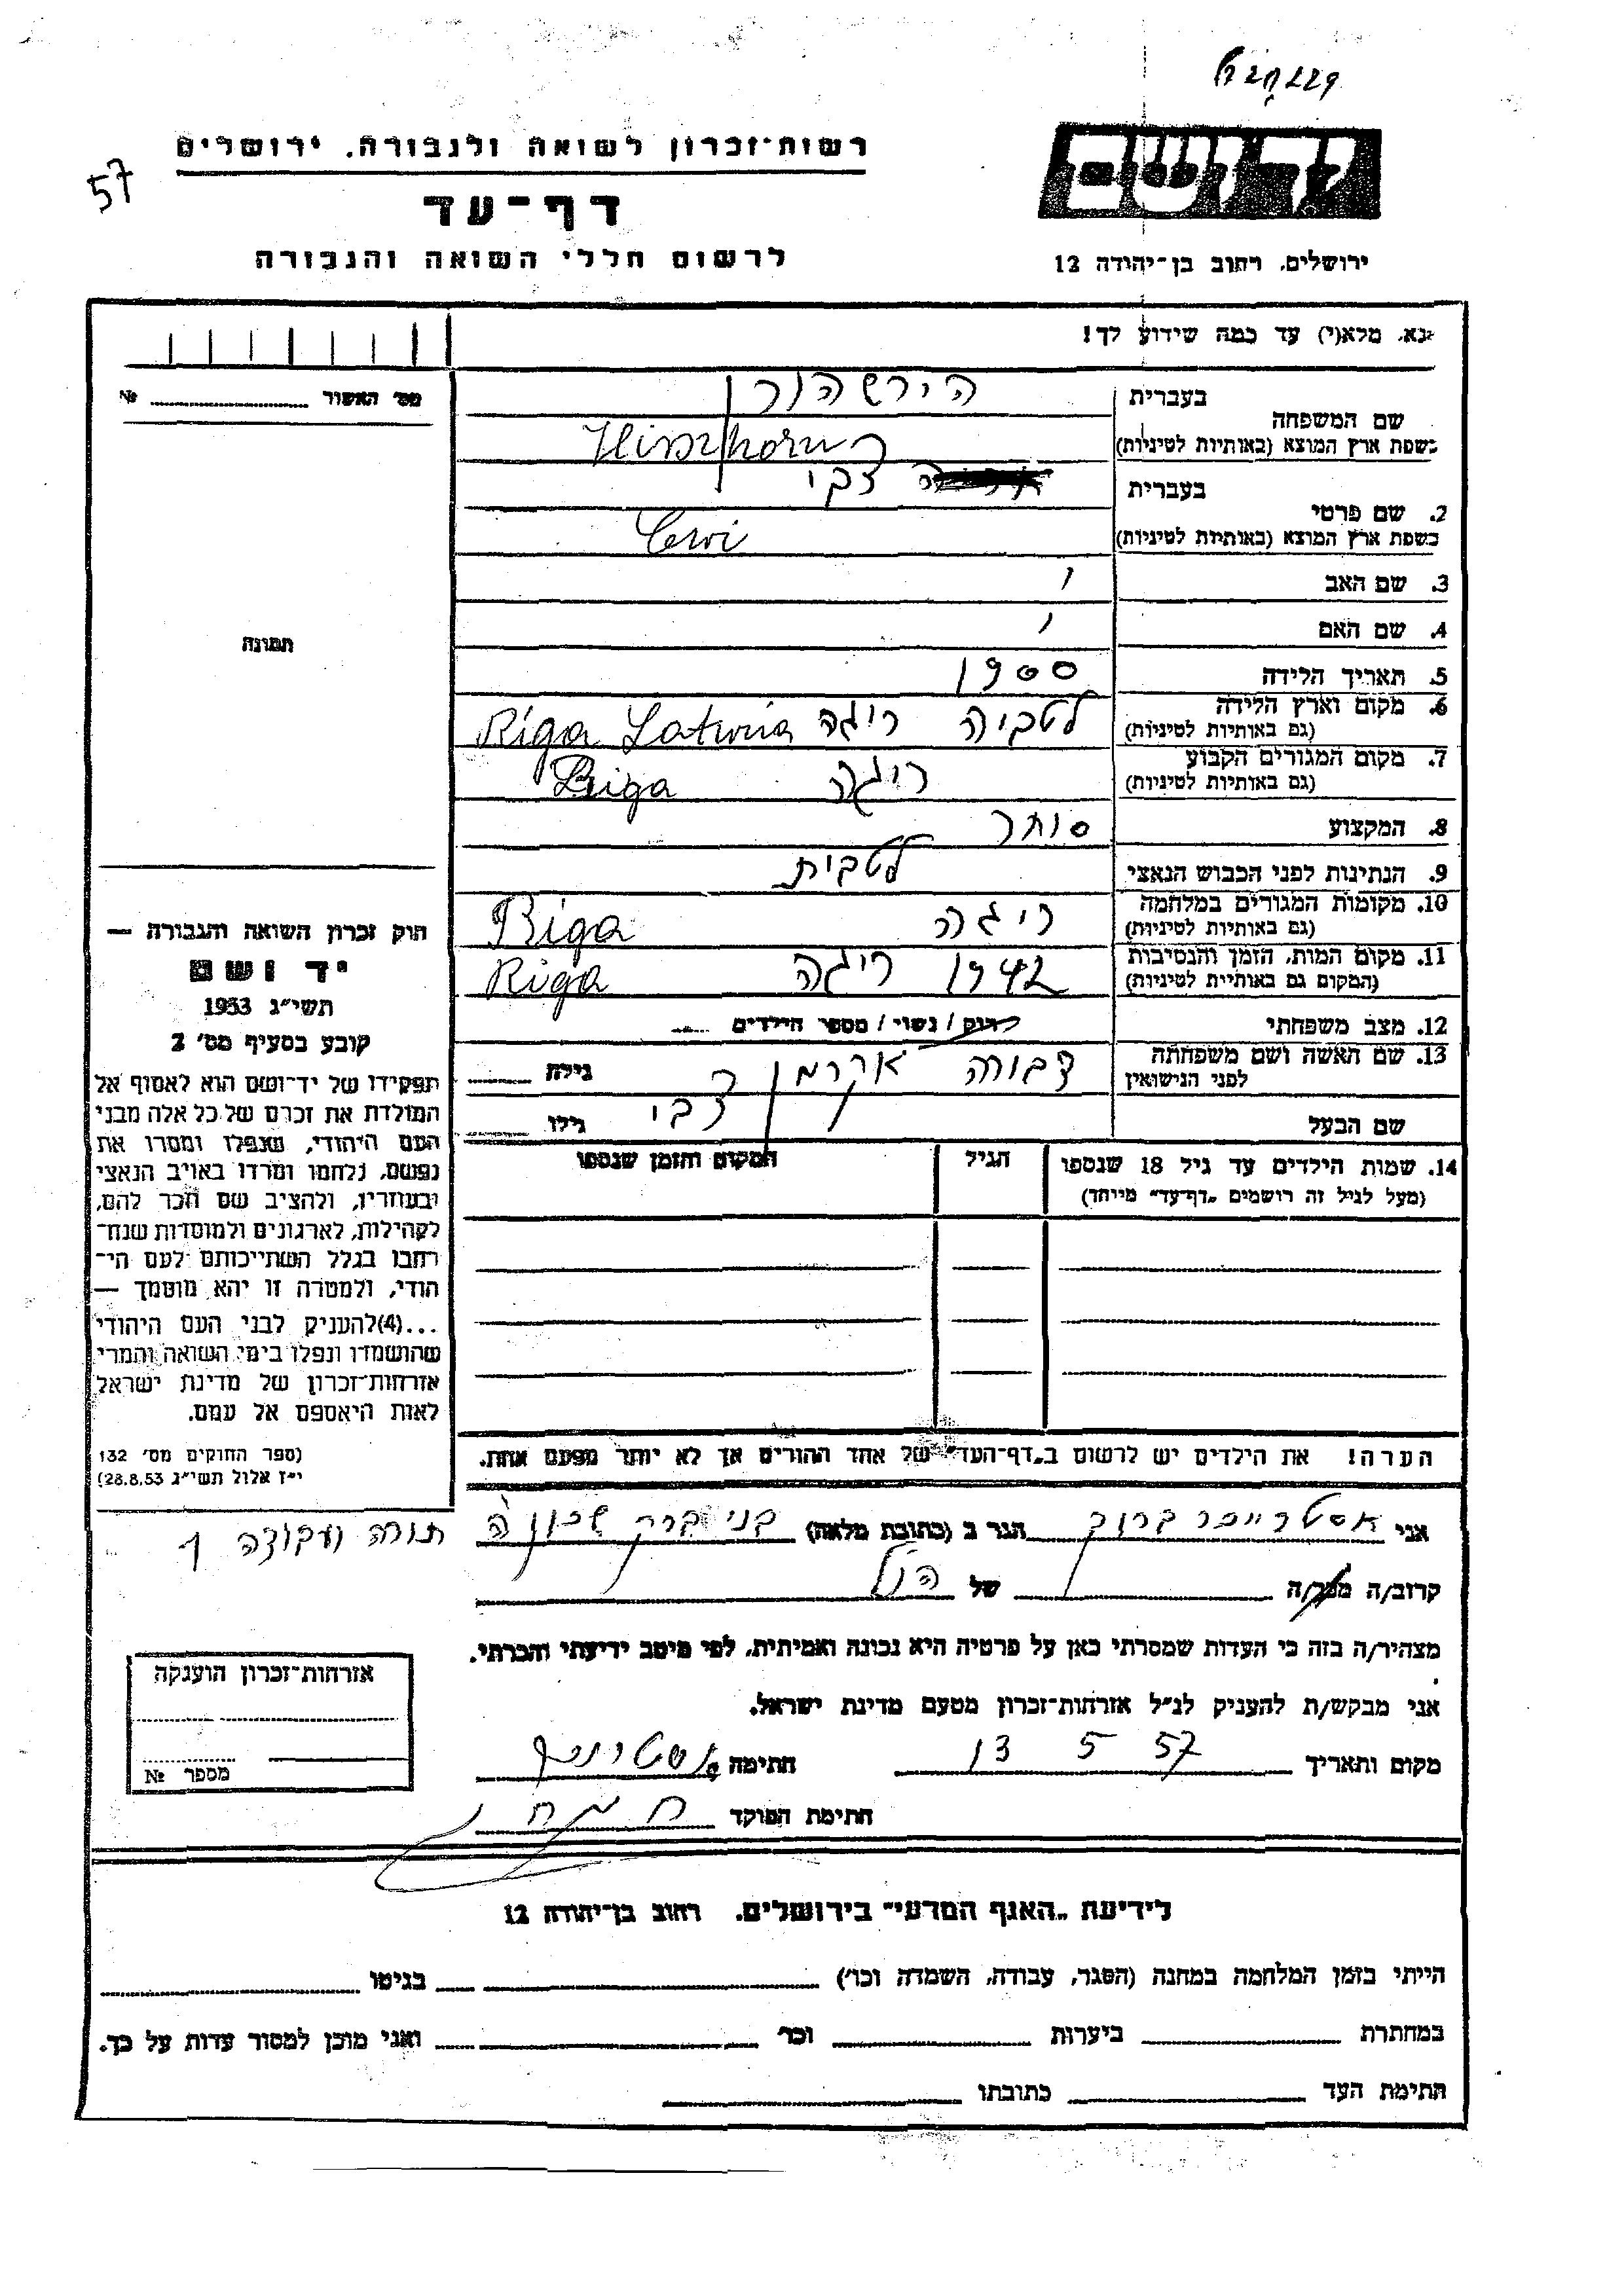 רשות־זכרון לשואה ולגבורה. ירושלים
57
דף־עד
לרשום חללי השואה והגבורה
ירושלים, רחוב בן־יהודה 12
נא, מלא(י) עד כמה שידוע לך!
מס׳ האשור № 
שם המשפחה
בעברית הירשהורן
בשפת ארץ המוצא (באותיות לטיניות) Hirszhorn
2. שם פרטי
בעברית צבי
בשפת ארץ המוצא (באותיות לטיניות) Cerwi
3. שם האב
4. שם האם
5. תאריך הלידה 1900
6. מקום וארץ הלידה לטביה ריגה Riga Latwia
(גם באותיות לטיניות)
7. מקום המגורים הקבוע ריגה Riga
(גם באותיות לטיניות)
8. המקצוע סוחר
9. הנתינות לפני הכבוש הנאצי לטבית
10. מקומות המגורים במלחמה ריגה Riga
(גם באותיות לטיניות)
11. מקום המות, הזמן והנסיבות 1942 ריגה Riga
(המקום גם באותיית לטיניות)
12. מצב משפחתי רווק / נשוי / מספר הילדים
13. שם האשה ושם משפחתה דבורה אקרמן גילה
לפני הנישואין
שם הבעל צבי גילו
14. שמות הילדים עד גיל 18 שנספו הגיל המקום והזמן שנספו
(מעל לגיל זה רושמים „דף־עד״ מייחד)
הערה! את הילדים יש לרשום ב„דף־העד״ של אחד ההורים אך לא יותר מפעם אחת.
תמונה
חוק זכרון השואה והגבורה —
יד ושם
תשי״ג 1953
קובע בסעיף מס׳ 2
תפקידו של יד־ושם הוא לאסוף אל
המולדת את זכרם של כל אלה מבני
העם היהודי, שנפלו ומסרו את
נפשם, נלחמו ומרדו באויב הנאצי
ובעוזריו, ולהציב שם וזכר להם,
לקהילות, לארגונים ולמוסדות שנח־
רבו בגלל השתייכותם לעם הי־
הודי, ולמטרה זו יהא מוסמך —
...(4)להעניק לבני העם היהודי
שהושמדו ונפלו בימי השואה והמרי
אזרחות־זכרון של מדינת ישראל
לאות היאספם אל עמם.
(ספר החוקים מס׳ 132
י״ז אלול תשי״ג 28.8.53)
אני אסטרייכר ברוך הגר ב (כתובת מלאה) בני ברק שכון ה תורה ועבודה 1
קרוב/ה מכר/ה של הנ״ל
מצהיר/ה בזה כי העדות שמסרתי כאן על פרטיה היא נכונה ואמיתית, לפי מיטב ידיעתי והכרתי.
אני מבקש/ת להעניק לנ״ל אזרחות־זכרון מטעם מדינת ישראל.
מקום ותאריך 13 5 57 חתימה
חתימת הפוקד
אזרחות־זכרון הוענקה
מספר №
לידיעת „האגף המדעי״ בירושלים. רחוב בן־יהודה 12
הייתי בזמן המלחמה במחנה (הסגר, עבודה, השמדה וכו׳) בגיטו
במחתרת ביערות וכו׳ ואני מוכן למסור עדות על כך.
חתימת העד כתובתו